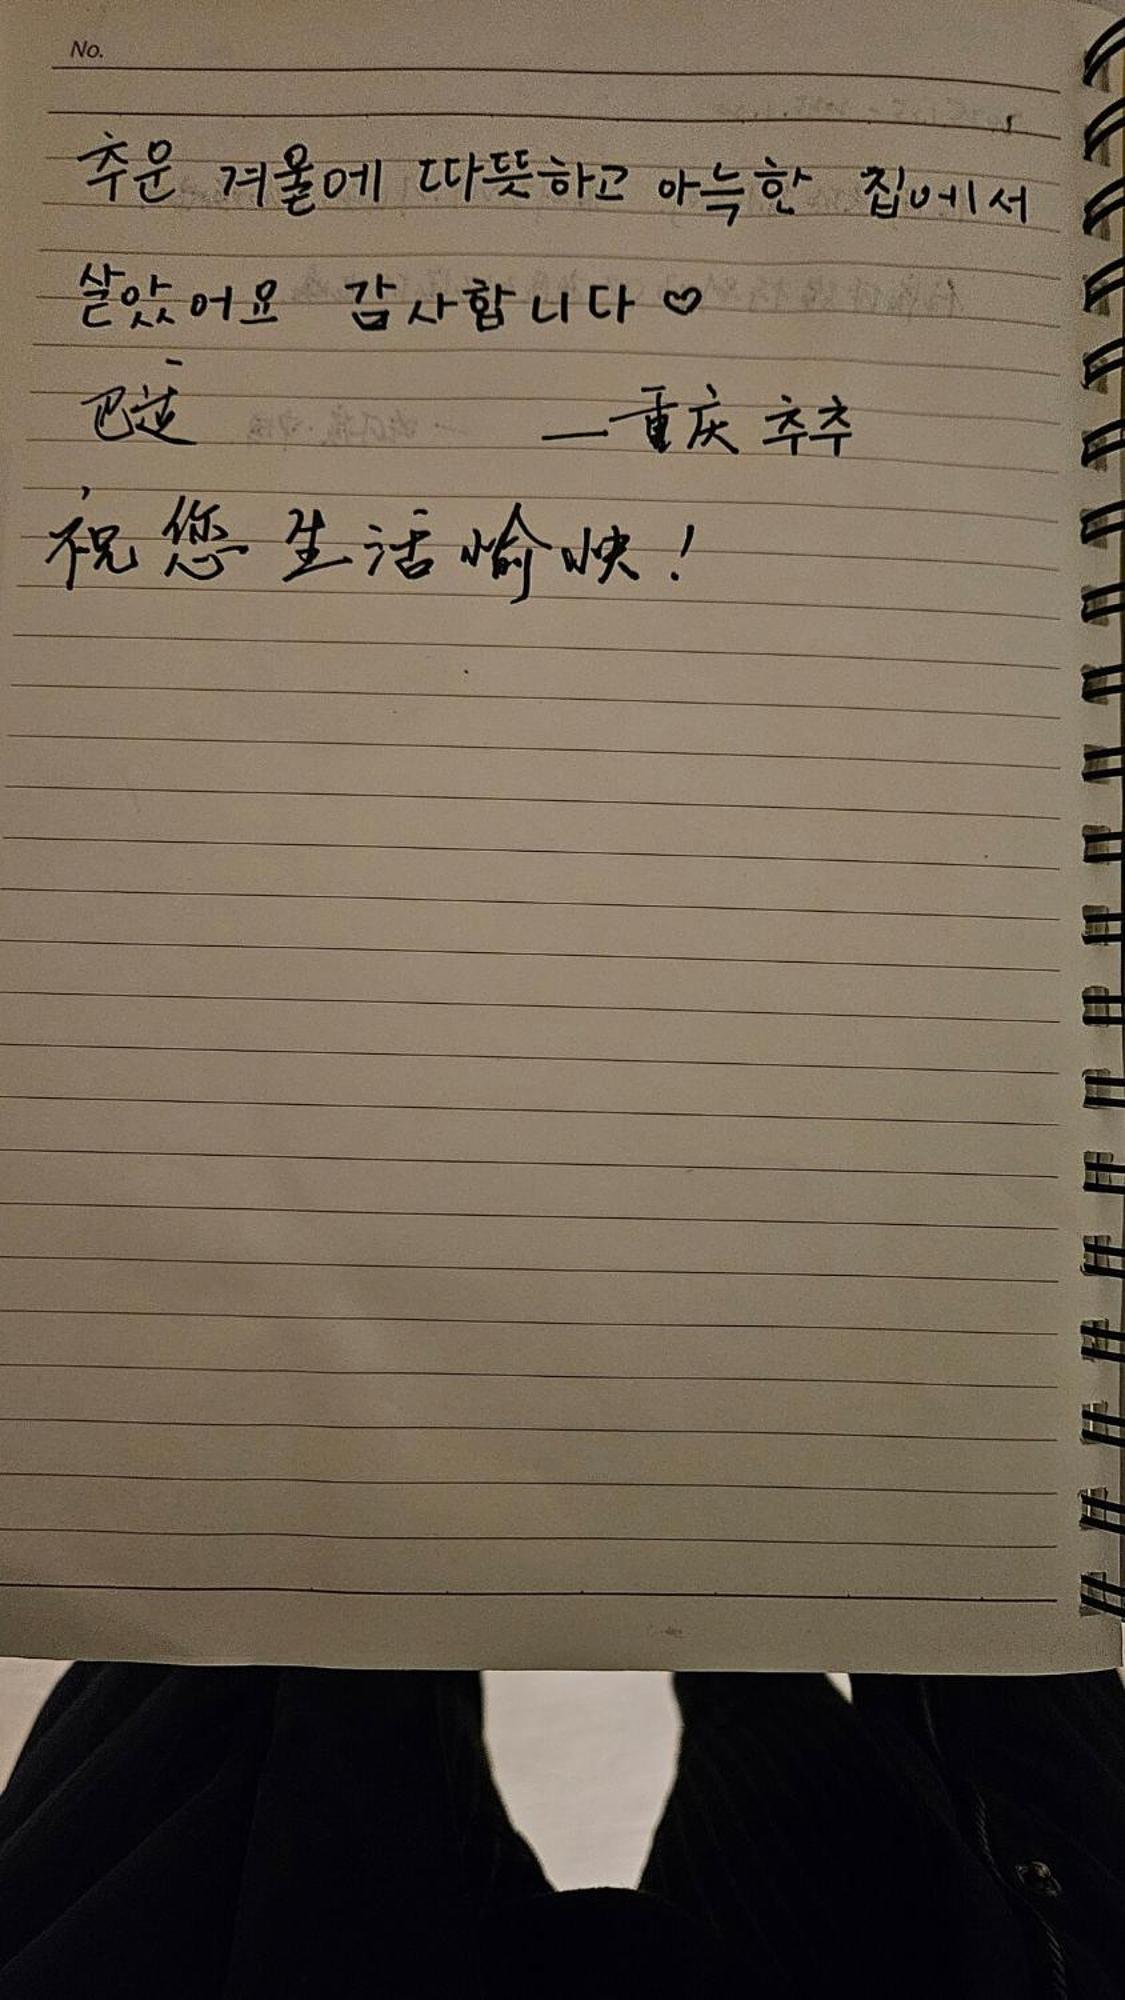 No.
추운 겨울에 따뜻하고 아늑한 집에서
살았어요 감사합니다 ♡
—重庆 추추
祝您生活愉快!